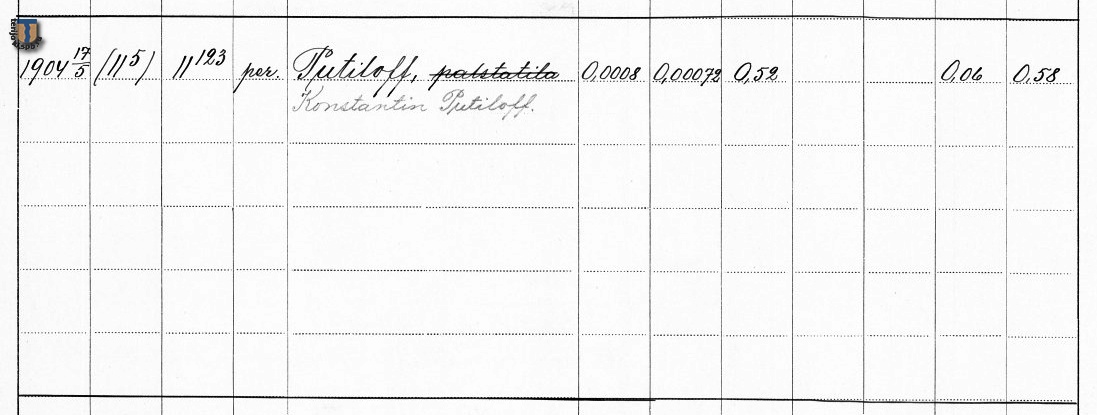 1904 17/5 (11⁵) 11¹²³ per. Putiloff, palstatila 0,0008 0,00072 0,52 0,06 0,58
Konstantin Putiloff.